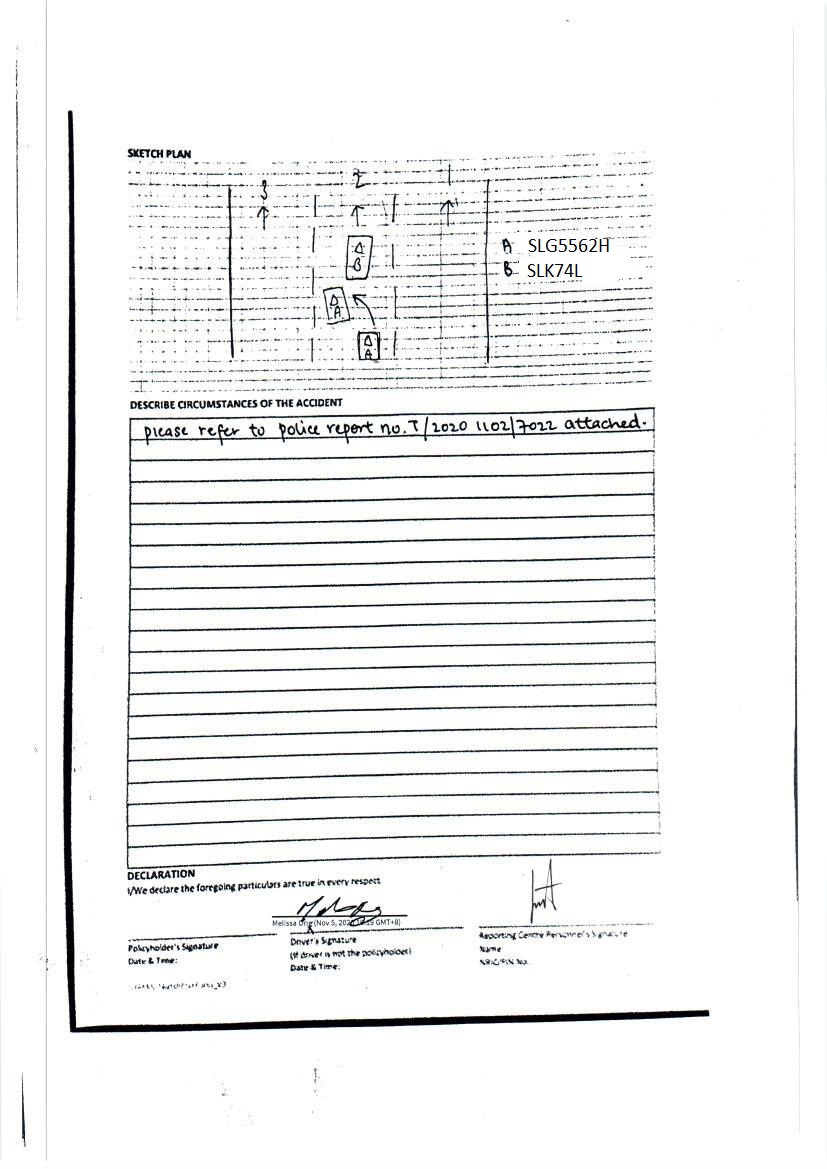 SKETCH PLAN
3 2 1
A SLG5562H
B SLK74L
B
A
A
DESCRIBE CIRCUMSTANCES OF THE ACCIDENT
please refer to police report no. T/2020 1102/7022 attached.
DECLARATION
I/We declare the foregoing particulars are true in every respect
Melissa Ong (Nov 5, GMT+8)
Policyholder's Signature
Date & Time:
Driver's Signature
(If driver is not the policyholder)
Date & Time:
Reporting Centre Personnel's Signature
Name
NRIC/FIN No.